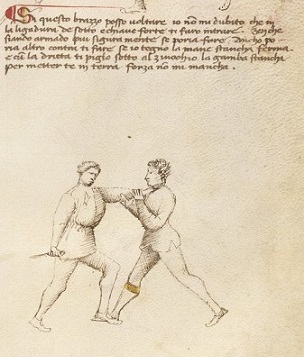 Si questo brazzo posso voltare io nō mi dubito che in
la ligadura de sotto e chiave forte ti farò intrare. Ben che
siando armado piu siguramente se poria fare. Ancho po-
ria altro contra ti fare se io tegno la mane stancha ferma.
e cū la dritta ti piglio sotto al zinochio la gamba stancha
per metter te in terra forza nō mi mancha.